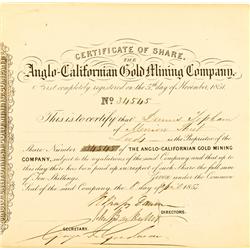 CERTIFICATE OF SHARE.
THE
Anglo-Californian Gold Mining Company.
First completely registered on the 5th day of November, 1851.
No 34545
This is to certify that
of
is the Proprietor of the
Share Number 34545 of THE ANGLO-CALIFORNIAN GOLD MINING
COMPANY, subject to the regulations of the said Company and that up to
this day there has been paid up in respect of such Share the full sum
of Ten Shillings. Given under the Common
Seal of the said Company, the 8 day of 185
DIRECTORS.
SECRETARY.